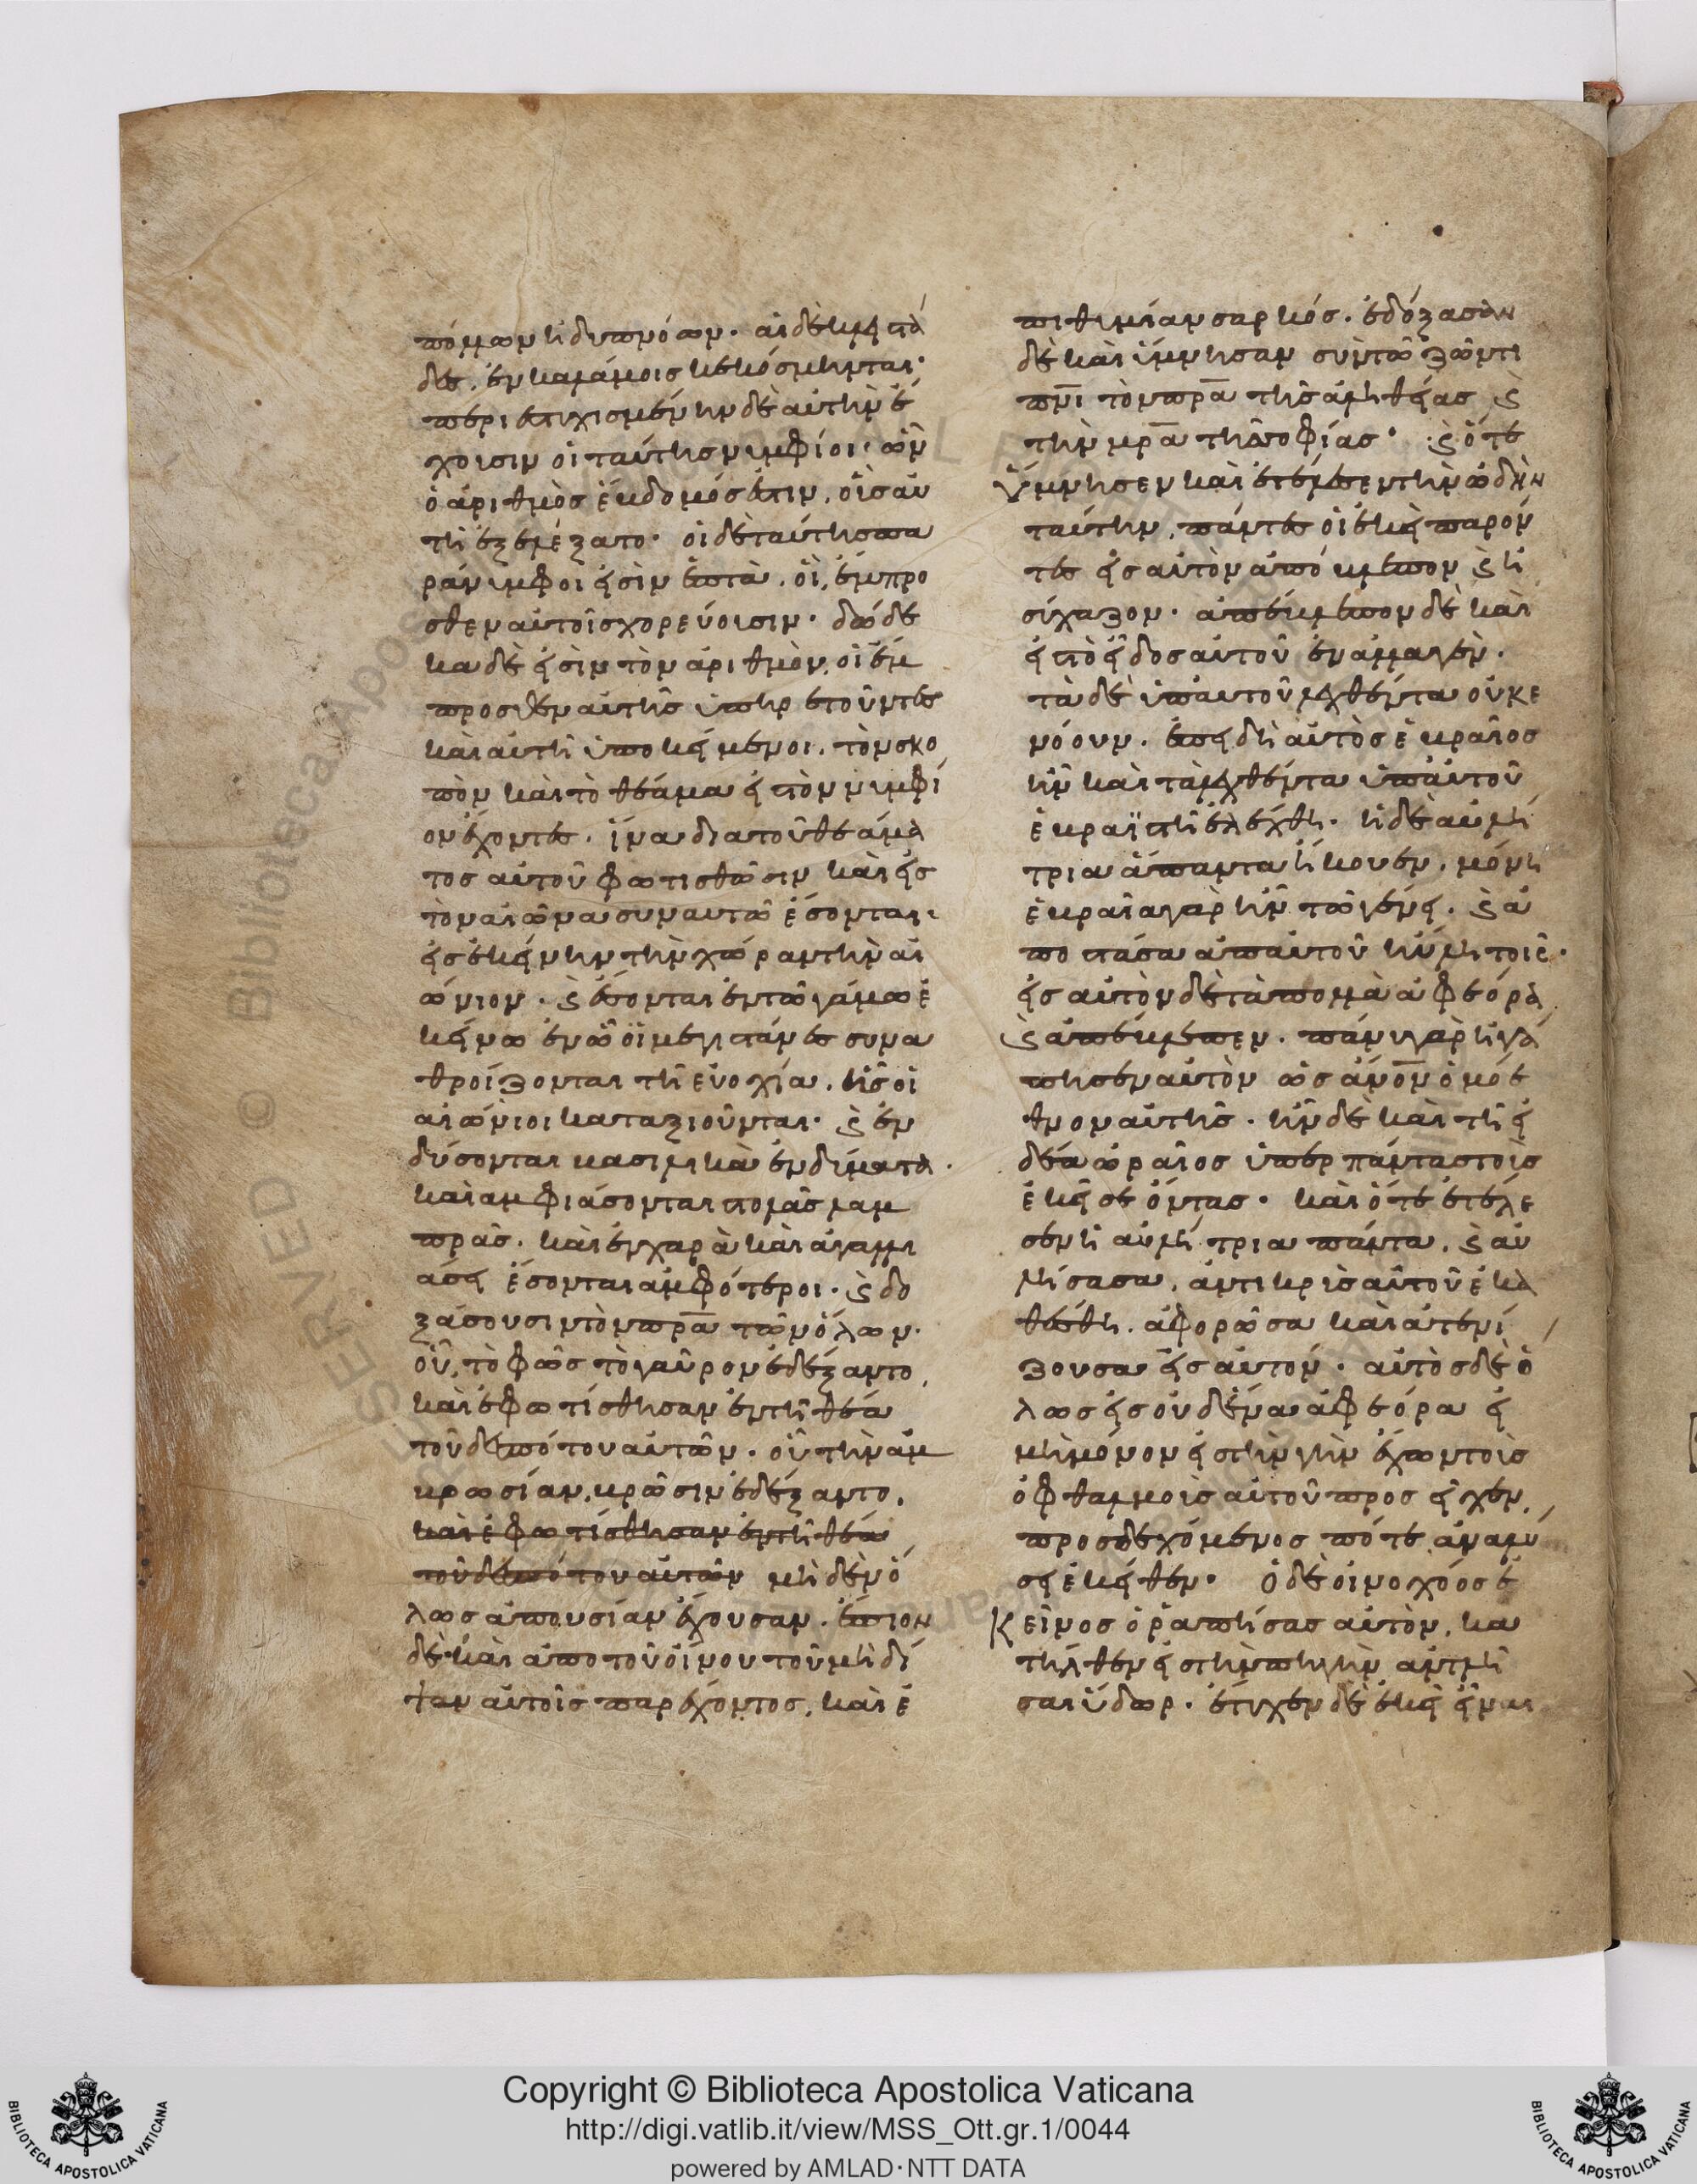 πόλλων ἡδυπνόων· αἱ δὲ κλειστά
δες, ἐν καλάμοις κεκόσμηνται·
περιστιχισμένην δὲ αὐτὴν ἔ
χουσιν οἱ ταύτης νυμφίοι· ὧν
ὁ ἀριθμὸς ἕβδομός ἐστιν, οἷς αὐ
τὴ ἐξελέξατο· οἱ δὲ ταύτης πα
ράνυμφοι εἰσὶν ἑπτὰ, οἳ, ἔμπρο
σθεν αὐτοῖς χορεύουσιν· δώδε
κα δὲ εἰσὶν τὸν ἀριθμὸν, οἱ ἔμ
προσθεν αὐτῆς ὑπηρετοῦντες
καὶ αὐτῇ ὑποκείμενοι, τὸν σκο
πὸν καὶ τὸ θέαμα εἰς τὸν νυμφί
ον ἔχοντες. ἵνα διὰ τοῦ θεάμα
τος αὐτοῦ φωτισθῶσιν καὶ εἰς
τὸν αἰῶνα συν αυτῶ ἔσονται
εἰς ἐκείνην τὴν χώραν τὴν αἰ
ώνιον. καὶ ἔσονται ἐν τῶ γάμω ἐ
κείνω ἐν ᾧ οἱ μεγιστάνες συνα
θροίζονται τῆ εὐοχία, ἧς οἱ
αἰώνιοι καταξιοῦνται· καὶ ἐν
δύσονται βασιλικὰ ἐνδύματα.
καὶ αμφιάσονται στολὰς λαμ
πράς. καὶ ἐν χαρὰ καὶ ἀγαλλι
άσει ἔσονται αμφότεροι. καὶ δο
ξάσουσιν τὸν πρα τῶν ὅλων·
οὗ, τὸ φῶς τὸ γαῦρον ἐδέξαντο,
καὶ ἐφωτίσθησαν ἐν τῆ θέα
τοῦ δεσπότου αὐτῶν. οὗ τὴν ἀμ
βρωσίαν, βρῶσιν ἐδέξαντο,
καὶ ἐφωτίσθησαν ἐν τῆ θέα
τοῦ δεσπότου αὐτῶν μὴ δὲν ὅ
λως ἀπουσίαν ἔχουσαν. ἔπιον
δὲ καὶ ἀπο τοῦ οἴνου τοῦ μὴ δί
ψαν αὐτοῖς παρέχοντος, καὶ ἐ
πιθυμίαν σαρκός. ἐδόξασαν
δὲ καὶ ὕμνησαν σὺν τῶ ζῶντι
πνι τὸν πρα τῆς ἀληθείας καὶ
τὴν μρα τῆς σοφίας· καὶ ὅτε
ὕμνησεν καὶ ἐτέλεσεν τὴν ὠδὴν
ταύτην, πάντες οἱ ἐκεῖ παρόν
τες εἰς αὐτὸν ἀπέβλεπον καὶ ἡ
σύχαζον. ἀπέβλεπον δὲ καὶ
εἰς τὸ εἶδος αὐτοῦ ἐναλλαγέν.
τὰ δὲ ὑπ αυτοῦ λεχθέντα οὐκ ε
νόουν. ἐπειδὴ αὐτὸς ἑβραῖος
ἦν καὶ τὰ λεχθέντα ὑπ αὐτοῦ
ἑβραϊστὶ ἐλέχθη. ἡ δὲ αὐλή
τρια ἅπαντα ἤκουεν. μόνη
ἑβραῖα γαρ ἦν τῶ γένει. καὶ ἀ
ποστᾶσα ἀπ αὐτοῦ ηὔλει τοῖς.
εἰς αὐτὸν δὲ τὰ πολλὰ ἀφεόρα
καὶ ἀπέβλεπεν. πάνυ γαρ ἠγά
πησεν αὐτὸν ὡς ἀνον ὁμοε
θνον αὐτῆς. ἦν δὲ καὶ τῆ εἰ
δέα ὡραῖος ὑπερ πάντας τοὺς
ἐκεῖσε ὄντας. καὶ ὅτε ἐτέλε
σεν ἡ αὐλήτρια πάντα, καὶ αὐ
λήσασα, ἄντικρὺς αὐτοῦ ἐκα
θέσθη. ἀφορῶσα καὶ ἀτενί
ζουσα εἰς αὐτόν. αὐτὸς δὲ ὅ
λως εἰς οὐδένα ἀφεόρα εἰ
μὴ μόνον εἰς τὴν γῆν ἔχων τοὺς
ὀφθαλμοὺς αὐτοῦ προσεῖχεν,
προσδεχόμενος πότε ἀναλύ
σει ἐκεῖθεν· Ὁ δὲ οἰνοχόος ἐ
κεῖνος ὁ ῥαπήσας αὐτὸν, κα
τῆλθεν εἰς τὴν πηγὴν ἀντλῆ
σαι ὕδωρ. ἔτυχεν δὲ ἐκεῖ εἶναι
Copyright © Biblioteca Apostolica Vaticana
http://digi.vatlib.it/view/MSS_Ott.gr.1/0044
powered by AMLAD·NTT DATA
BIBLIOTECA APOSTOLICA VATICANA
BIBLIOTECA APOSTOLICA VATICANA